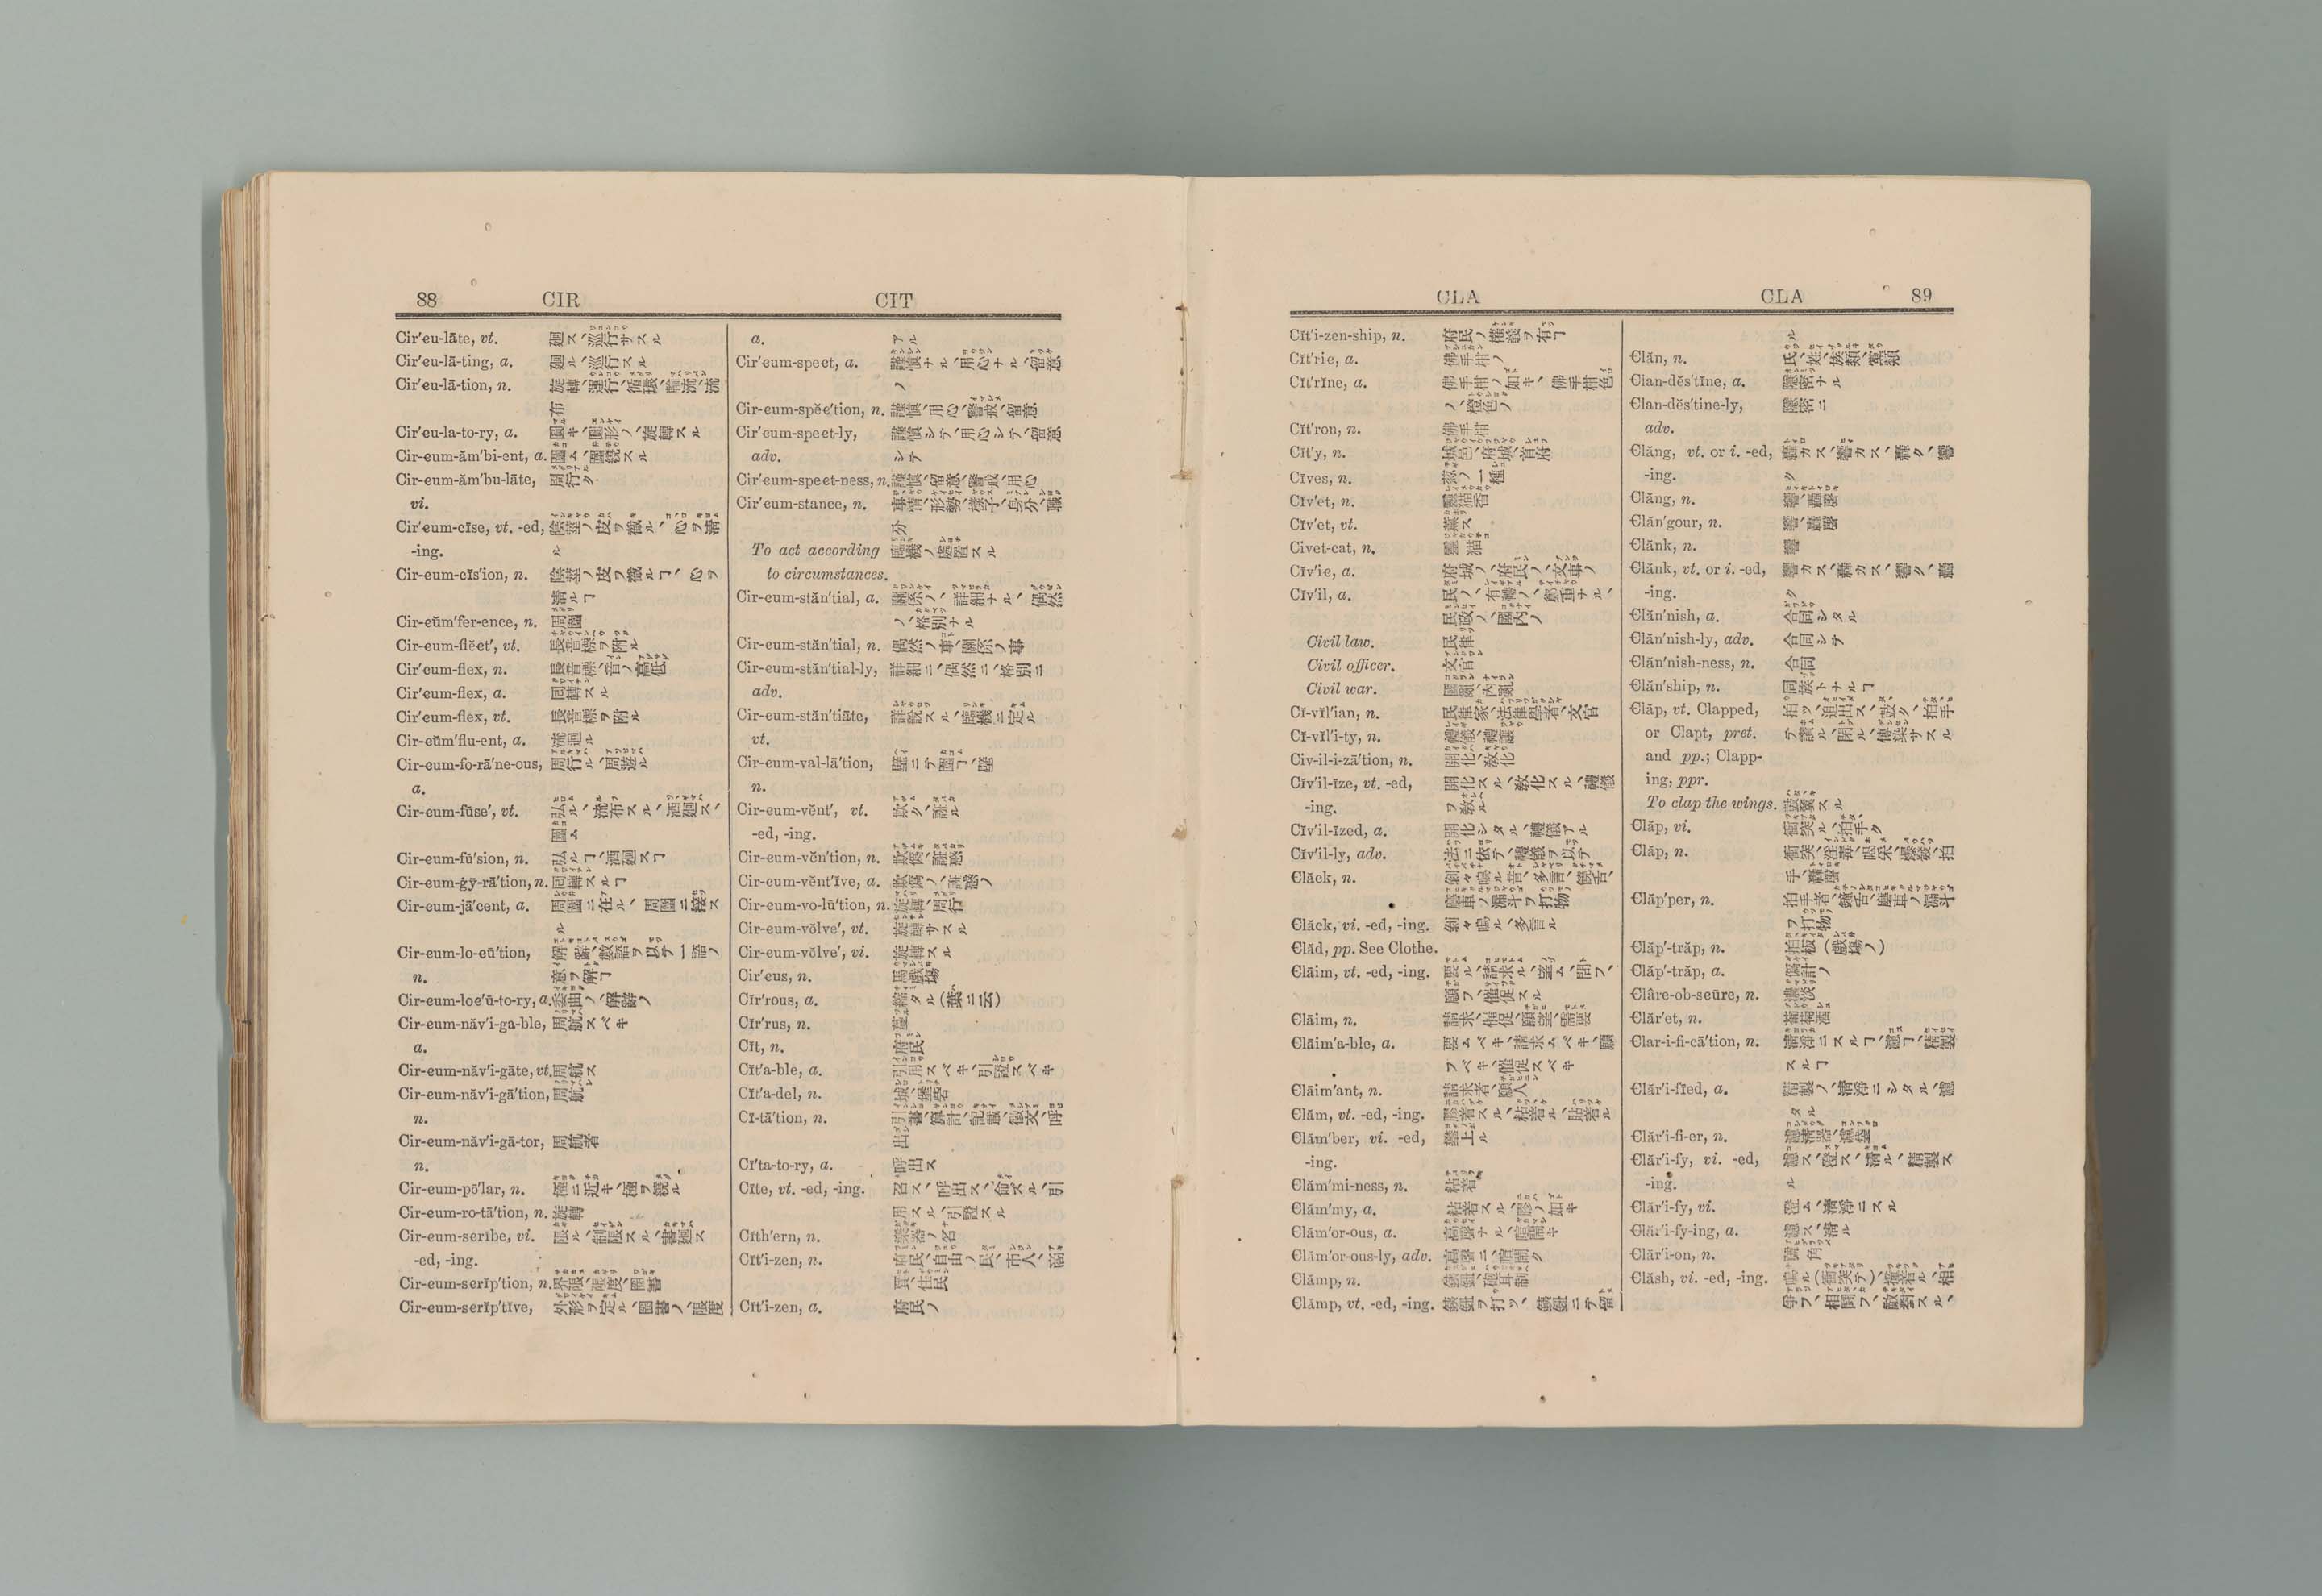 88 CIR CIT
Cir′cu-lāte, vt. 廻ス、巡行サスル
Cir′cu-lā-ting, a. 廻ル、巡行スル
Cir′cu-lā-tion, n. 旋轉、運行、循環、輪流、流
布
Cir′cu-la-to-ry, a. 圓キ、圓形ノ、旋轉スル
Cir-cum-ăm′bi-ent, a. 圍ム、圍繞スル
Cir-cum-ăm′bu-lāte, 周行ク
vi.
Cir′cum-cīse, vt. -ed, 陰莖ノ皮ヲ截ル、心ヲ清
-ing. ル
Cir-cum-cĭs′ion, n. 陰莖ノ皮ヲ截ルヿ、心ヲ
清ルヿ
Cir-cŭm′fer-ence, n. 周圍
Cir-cum-flĕct′, vt. 長音標ヲ附ル
Cir′cum-flex, n. 長音標、音ノ高低
Cir′cum-flex, a. 囘轉スル
Cir′cum-flex, vt. 長音標ヲ附ル
Cir-cŭm′flu-ent, a. 流廻ル
Cir-cum-fo-rā′ne-ous, 周行ル、周遊ル
a.
Cir-cum-fūse′, vt. 弘ル、流布スル、洒廻ス、
圍ム
Cir-cum-fū′sion, n. 弘ルヿ、洒廻スヿ
Cir-cum-ġȳ-rā′tion, n. 囘轉スルヿ
Cir-cum-jā′cent, a. 周圍ニ在ル、周圍ニ接ス
ル
Cir-cum-lo-cū′tion, 解辭、數語ヲ以テ一語ノ
n. 意ヲ解ヿ
Cir-cum-loc′ū-to-ry, a. 委曲ノ、解辭ノ
Cir-cum-năv′i-ga-ble, 周航スベキ
a.
Cir-cum-năv′i-gāte, vt. 周航ス
Cir-cum-năv′i-gā′tion, 周航
n.
Cir-cum-năv′i-gā-tor, 周航者
n.
Cir-cum-pō′lar, n. 極ニ近キ、極ヲ繞ル
Cir-cum-ro-tā′tion, n. 旋轉
Cir-cum-scrībe, vi. 限ル、制限スル、書廻ス
-ed, -ing.
Cir-cum-scrĭp′tion, n. 界限、限度、圍書
Cir-cum-scrĭp′tĭve, 外形ヲ定ル、圍書ノ、限度
a. アル
Cir′cum-spect, a. 謹愼ナル、用心ナル、留意
ノ
Cir-cum-spĕc′tion, n. 謹愼、用心、警戒、留意
Cir′cum-spect-ly, 謹愼シテ、用心シテ、留意
adv. シテ
Cir′cum-spect-ness, n. 謹愼、留意、警戒、用心
Cir′cum-stance, n. 事情、形勢、樣子、身分、職
分
To act according 臨機ノ處置スル
to circumstances.
Cir-cum-stăn′tial, a. 關係ノ、詳細ナル、偶然
ノ、格別ナル
Cir-cum-stăn′tial, n. 偶然ノ事、關係ノ事
Cir-cum-stăn′tial-ly, 詳細ニ、偶然ニ、格別ニ
adv.
Cir-cum-stăn′tiāte, 詳說スル、臨機ニ定ル
vt.
Cir-cum-val-lā′tion, 壁ニテ圍ヿ、壁
n.
Cir-cum-vĕnt′, vt. 欺ク、誑ル
-ed, -ing.
Cir-cum-vĕn′tion, n. 欺僞、誑惑
Cir-cum-vĕnt′ĭve, a. 欺僞ノ、誑惑ノ
Cir-cum-vo-lū′tion, n. 旋轉、周行
Cir-cum-vŏlve′, vt. 旋轉サスル
Cir-cum-vŏlve′, vi. 旋轉スル
Cir′cus, n. 馬戲場
Cĭr′rous, a. 縮タル(葉ニ云)
Cĭr′rus, n. 蔓
Cĭt, n. 府民
Cīt′a-ble, a. 引用スベキ、引證スベキ
Cĭt′a-del, n. 城、堡砦
Cī-tā′tion, n. 引書、算計、記載、檄文、呼
出
Cī′ta-to-ry, a. 呼出ス
Cīte, vt. -ed, -ing. 召ス、呼出ス、命ズル、引
用スル、引證スル
Cĭth′ern, n. 樂器ノ名
Cĭt′i-zen, n. 府民、自由ノ民、市人、商
買、住民
Cĭt′i-zen, a. 府民ノ
CLA CLA 89
Cĭt′i-zen-ship, n. 府民ノ權義ヲ有ヿ
Cĭt′ric, a. 佛手柑ノ
Cĭt′rĭne, a. 佛手柑ノ如キ、佛手柑色
ノ、橙色ノ
Cĭt′ron, n. 佛手柑
Cĭt′y, n. 城邑、府城、首府
Cīves, n. 葱ノ一種
Cĭv′et, n. 靈猫香
Cĭv′et, vt. 薰ス
Civet-cat, n. 靈猫
Cĭv′ic, a. 府城ノ、府民ノ、文事ノ
Cĭv′il, a. 民ノ、有禮ノ、鄭重ナル、
民政ノ、國內ノ
Civil law. 民律
Civil officer. 文官
Civil war. 國亂、內亂
Cĭ-vĭl′ian, n. 民律家、法律學者、文官
Cĭ-vĭl′i-ty, n. 禮儀、禮讓
Civ-il-i-zā′tion, n. 開化、敎化
Cĭv′il-īze, vt. -ed, 開化スル、敎化スル、禮儀
-ing. ヲ敎ル
Cĭv′il-īzed, a. 開化シタル、禮儀アル
Cĭv′il-ly, adv. 法ニ依テ、禮儀ヲ以テ
Clăck, n. 剨々鳴ル音、多言、饒舌、
磨車ノ漏斗ヲ打物
Clăck, vi. -ed, -ing. 剨々鳴ル、多言ル
Clăd, pp. See Clothe.
Clāim, vt. -ed, -ing. 要ル、請求ル、望ム、問フ、
願フ、催促スル
Clāim, n. 請求、催促、願望、需要
Clāim′a-ble, a. 要ムベキ、請求ムベキ、願
フベキ、催促スベキ
Clāim′ant, n. 請求者、願人
Clăm, vt. -ed, -ing. 膠着スル、粘着ル、貼着ル
Clăm′ber, vi. -ed, 攀上ル
-ing.
Clăm′mi-ness, n. 粘着
Clăm′my, a. 粘着スル、膠ノ如キ
Clăm′or-ous, a. 高聲ナル、喧閙キ
Clăm′or-ous-ly, adv. 高聲ニ、喧閙ク
Clămp, n. 鎹鈕、砲耳
Clămp, vt. -ed, -ing. 鎹鈕ヲ打ツ、鎹鈕ニテ留
ル
Clăn, n. 氏、姓、族類、黨類
Clan-dĕs′tĭne, a. 隱密ナル
Clan-dĕs′tine-ly, 隱密ニ
adv.
Clăng, vt. or i. -ed, 轟カス、響カス、轟ク、響
-ing. ク
Clăng, n. 響、轟聲
Clăn′gour, n. 響、轟聲
Clănk, n. 響
Clănk, vt. or i. -ed, 響カス、轟カス、響ク、轟
-ing. ク
Clăn′nish, a. 合同シタル
Clăn′nish-ly, adv. 合同シテ
Clăn′nish-ness, n. 合同
Clăn′ship, n. 同族トナルヿ
Clăp, vt. Clapped, 拍ツ、追出ス、鼓ク、拍手
or Clapt, pret. テ讃ル、閉ル、傳染サスル
and pp.; Clapp-
ing, ppr.
To clap the wings. 鼓翼スル
Clăp, vi. 衝突ル、拍手ク
Clăp, n. 衝突、淫毒、喝采、爆發、拍
手、轟聲
Clăp′per, n. 拍手者、鐘舌、磨車ノ漏斗
ヲ打物
Clăp′-trăp, n. 拍板(戲場ノ)
Clăp′-trăp, a. 僞計ノ
Clâre-ob-scūre, n. 濃淡
Clăr′et, n. 葡萄酒
Clar-i-fi-cā′tion, n. 淸淨ニスルヿ、濾ヿ、精製
スルヿ
Clăr′i-fīed, a. 精製ノ、淸淨ニシタル、濾
タル
Clăr′i-fi-er, n. 濾淸器、濾盆
Clăr′i-fy, vi. -ed, 濾ス、澄ス、淸ル、精製ス
-ing. ル
Clăr′i-fy, vi. 澄ム、淸淨ニスル
Clăr′i-fy-ing, a. 濾ス、淸ル
Clăr′i-on, n. 角
Clăsh, vi. -ed, -ing. 鳴ル(衝突テ)、撞着ル、相
爭フ、相鬪フ、敵對スル、